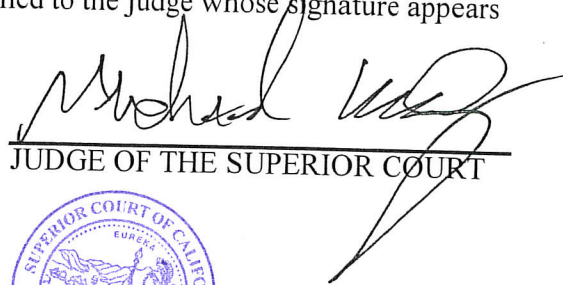 to the judge whose signature appears
Michael
JUDGE OF THE SUPERIOR COURT
SUPERIOR COURT OF CALIFO
EUREKA